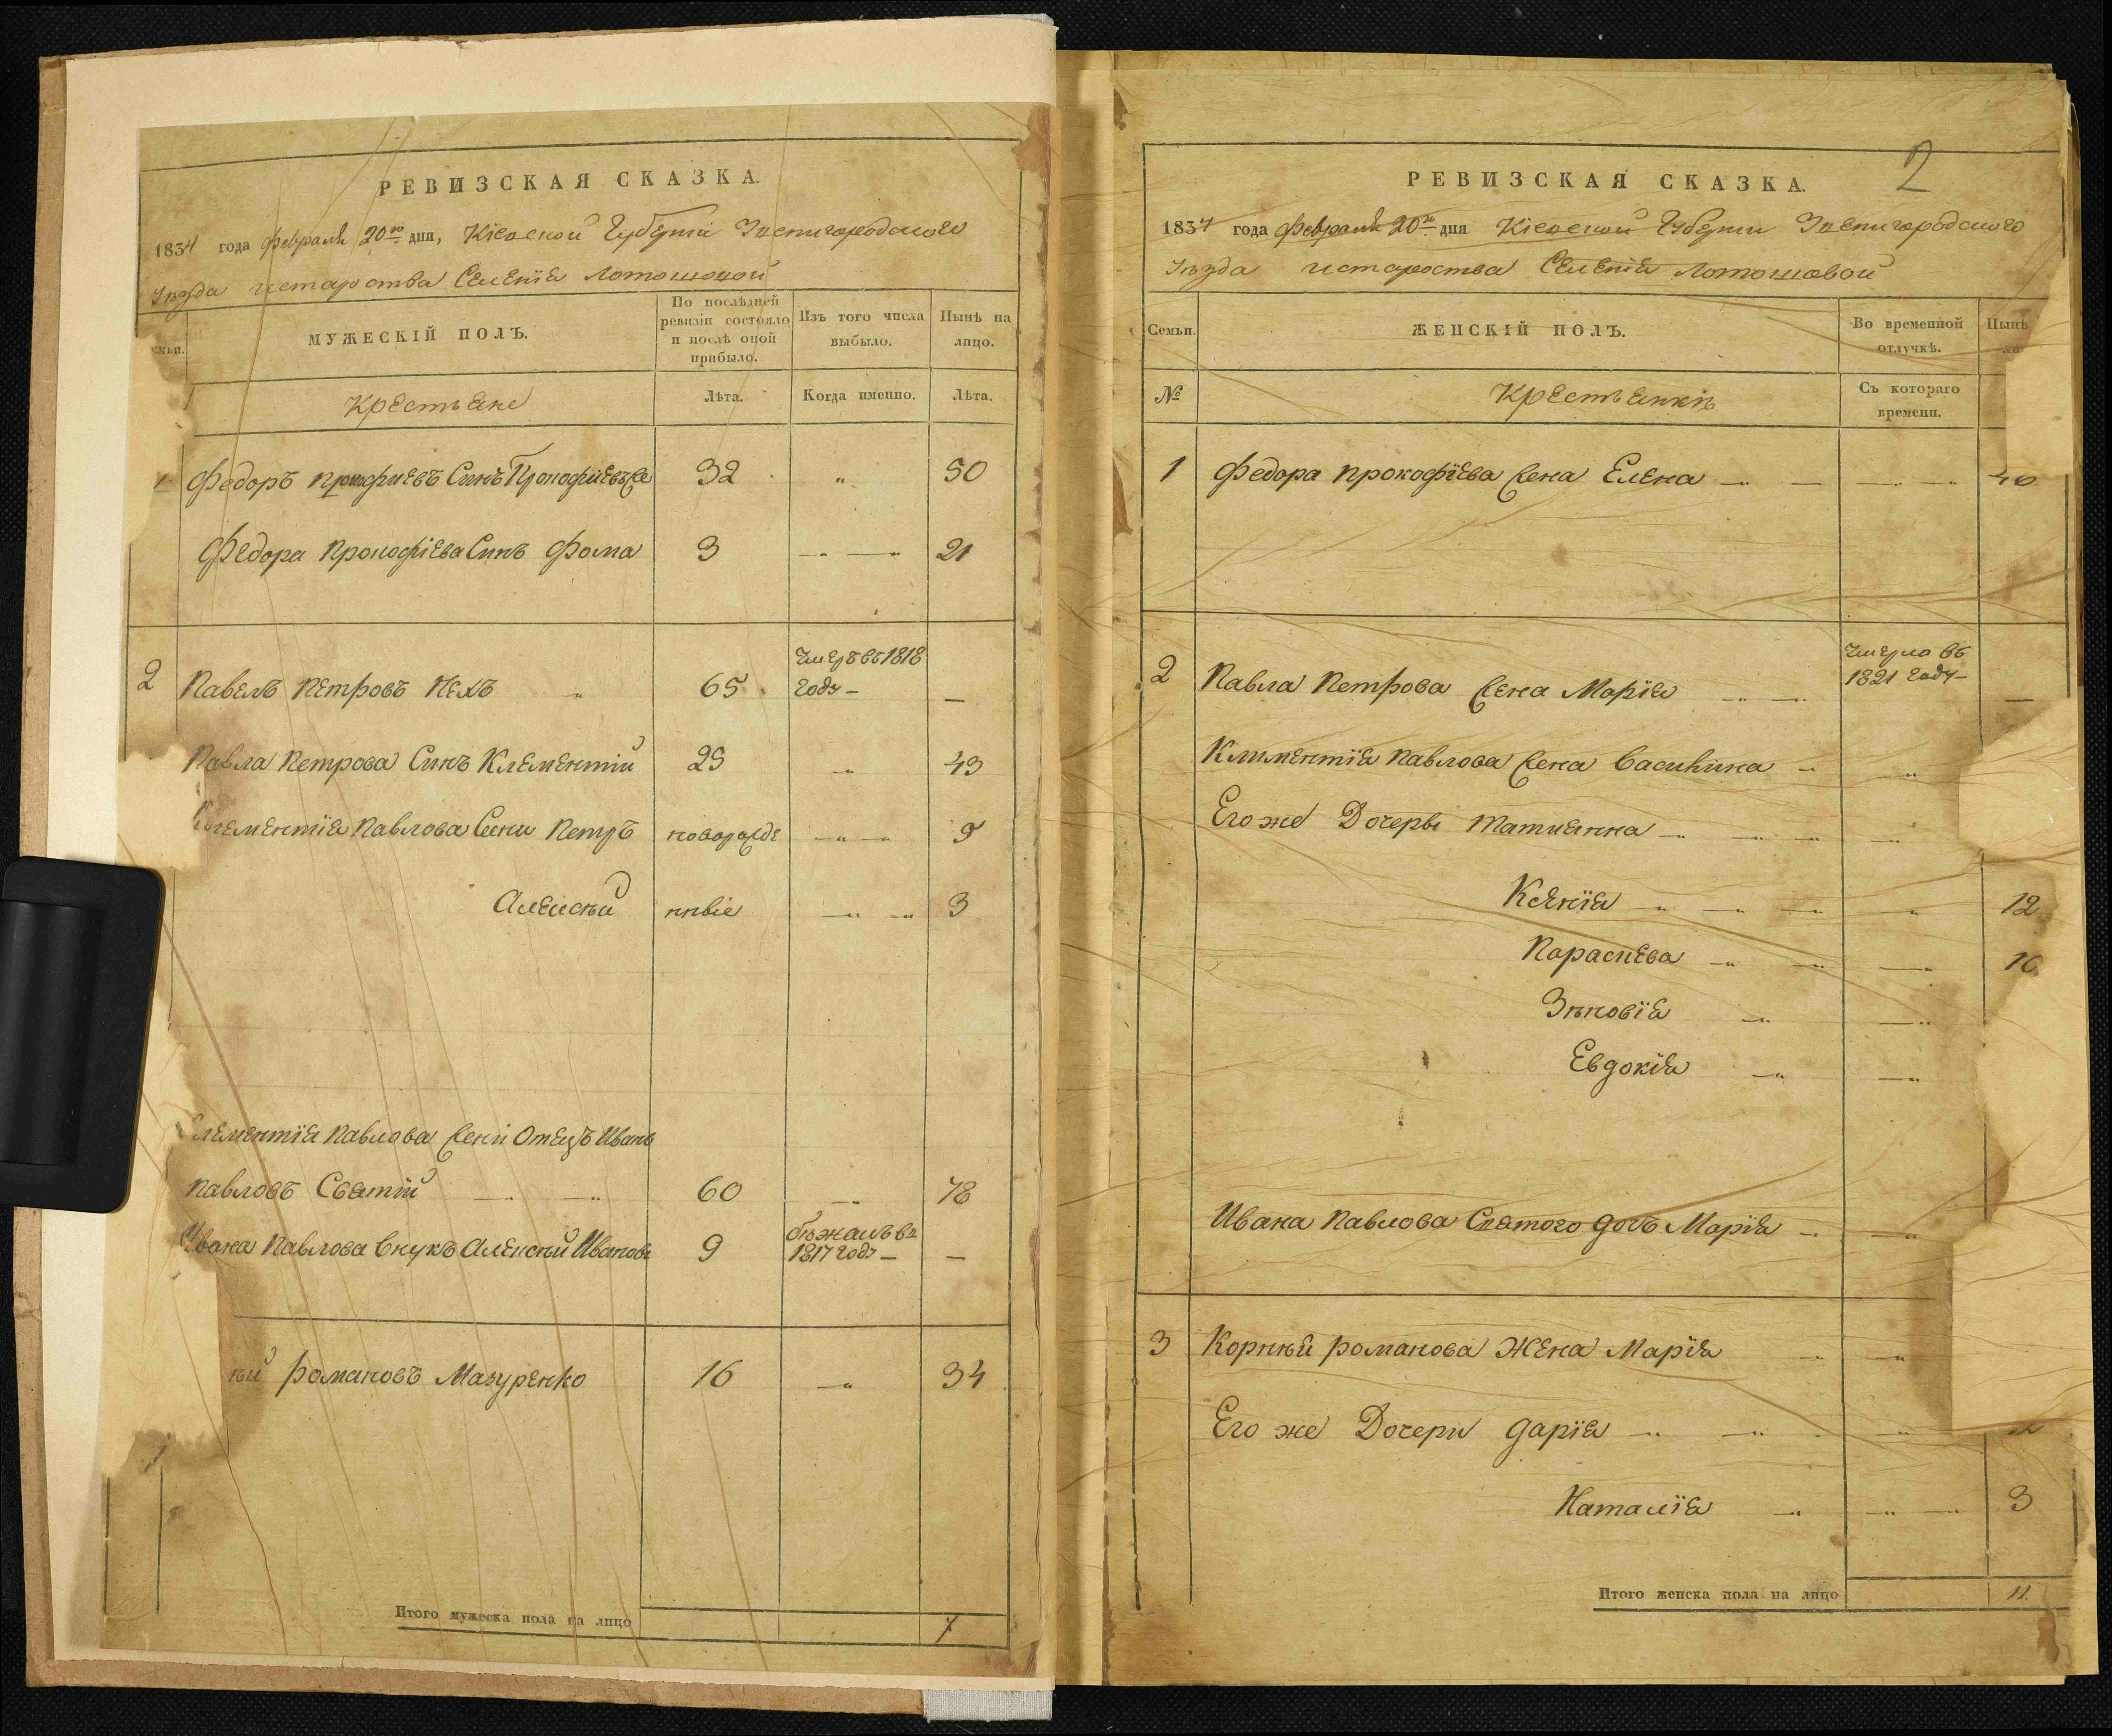 РЕВИЗСКАЯ СКАЗКА.
1834 года февраля 20го дня, Кіевской Губерніи Звенигородского
Уезда и староства Селенія Лотошовой
МУЖЕСКІЙ ПОЛЪ.
По послѣдней ревизіи состояло и послѣ оной прибыло.
Изъ того числа выбыло.
Нынѣ на лицо.
Крестьяне
Лѣта.
Когда именно.
Лѣта.
1 Федоръ Прокофиевъ Синъ 32 „ 50
Федора Прокофіева Синъ Фома 3 21
2 Павелъ Петровъ 65 Умеръ въ 1818 году —
Павла Петрова Синъ Клементій 25 „ 43
Клементія Павлова Сини Петръ новорожде 9
Алексѣй нные 3
Клементія Павлова жени Отецъ Иванъ
Павловъ Святій 60 78
Ивана Павлова Внукъ Алексѣй Ивановъ 9 бѣжалъ въ 1817 году —
ѣй Романовъ Мазуренко 16 34
Итого мужеска пола на лицо 7
2
РЕВИЗСКАЯ СКАЗКА.
1834 года февраля 20го дня Кіевской Губерніи Звенигородского
Уезда и староства Селенія Лотошовой
Семьи.
ЖЕНСКІЙ ПОЛЪ.
Во временной отлучкѣ.
Нынѣ
№
Крестьянки
Съ котораго времени.
1 Федора Прокофіева жена Елена 40
2 Павла Петрова жена Марія Умерла въ 1821 году —
Климентія Павлова жена
Его же Дочерѣ Татиянна
Ксенія 12
Параскева 10
Зѣновія
Евдокія
Ивана Павлова Святого дочъ Марія
3 Корнѣй Романова Жена Марія
Его же Дочери Дарія
Наталія 3
Итого женска пола на лицо 11.